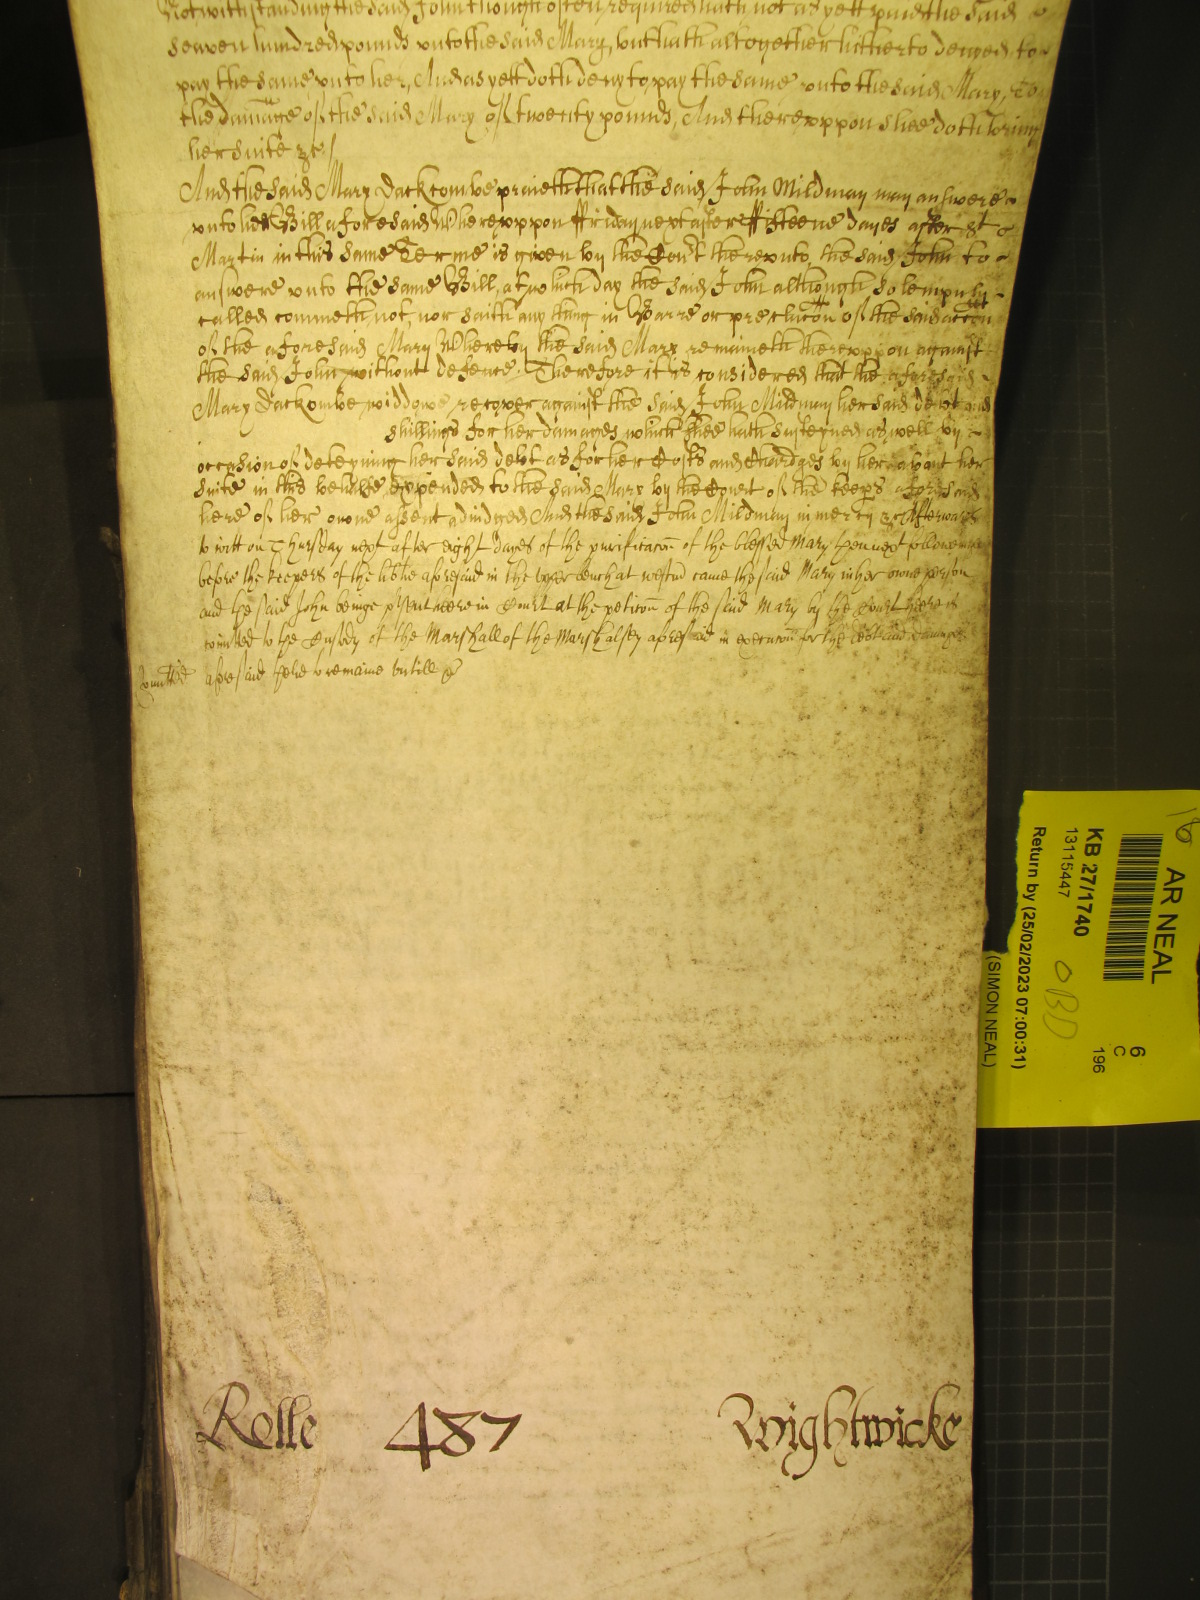 Notwithstanding the said John though often required hath not as yett paid the said
seaven hundred pounds vnto the said Mary, but hath altogether hitherto denyed to
pay the same vnto her, And as yett doth deny to pay the same vnto the said Mary, To
the damage of the said Mary of twenty pounds, And therevppon shee doth bring
her suite &c /
And the said Mary Dackcombe praieth that the said John Mildmay may answere
vnto her Bill aforesaid Wherevppon ffriday next after ffifteene dayes after St
Martin in this same Terme is given by the Court therevnto, the said John to
answere vnto the same Bill, at which day the said John although solempnly
called commeth not, nor saith any thing in Barre or preclucon of the said accon
of the aforesaid Mary Whereby the said Mary remaineth therevppon against
the said John without defence. Therefore it is considered that the aforesaid
Mary Dackombe widdowe recover against the said John Mildmay her said debt and
shillings for her damages which shee hath susteyned aswell by
occasion of deteyning her said debt as for her Costs and Chardges by her about her
suite in this behalfe expended to the said Mary by the Court of the keeps aforesaid
here of her owne assent adiudged And the said John Mildmay in mercy &c Afterwards
to witt on Thursday next after eight dayes of the purificacon of the blessed Mary then next followeinge
before the keepers of the libtie aforesaid in the vpper bench at westmr came the said Mary in her owne person
and the said John beinge p'sent here in Court at the peticon of the said Mary by the Court here is
comitted to the Custody of the Marshall of the Marshalsey aforesaid in execucon for the debt and damages
Comitted aforesaid there to remaine vntill &c
Rolle 487 Wightwicke
18
AR NEAL
KB 27/1740
13115447
Return by (25/02/2023 07:00:31)
(SIMON NEAL)
OBD
6
C
196